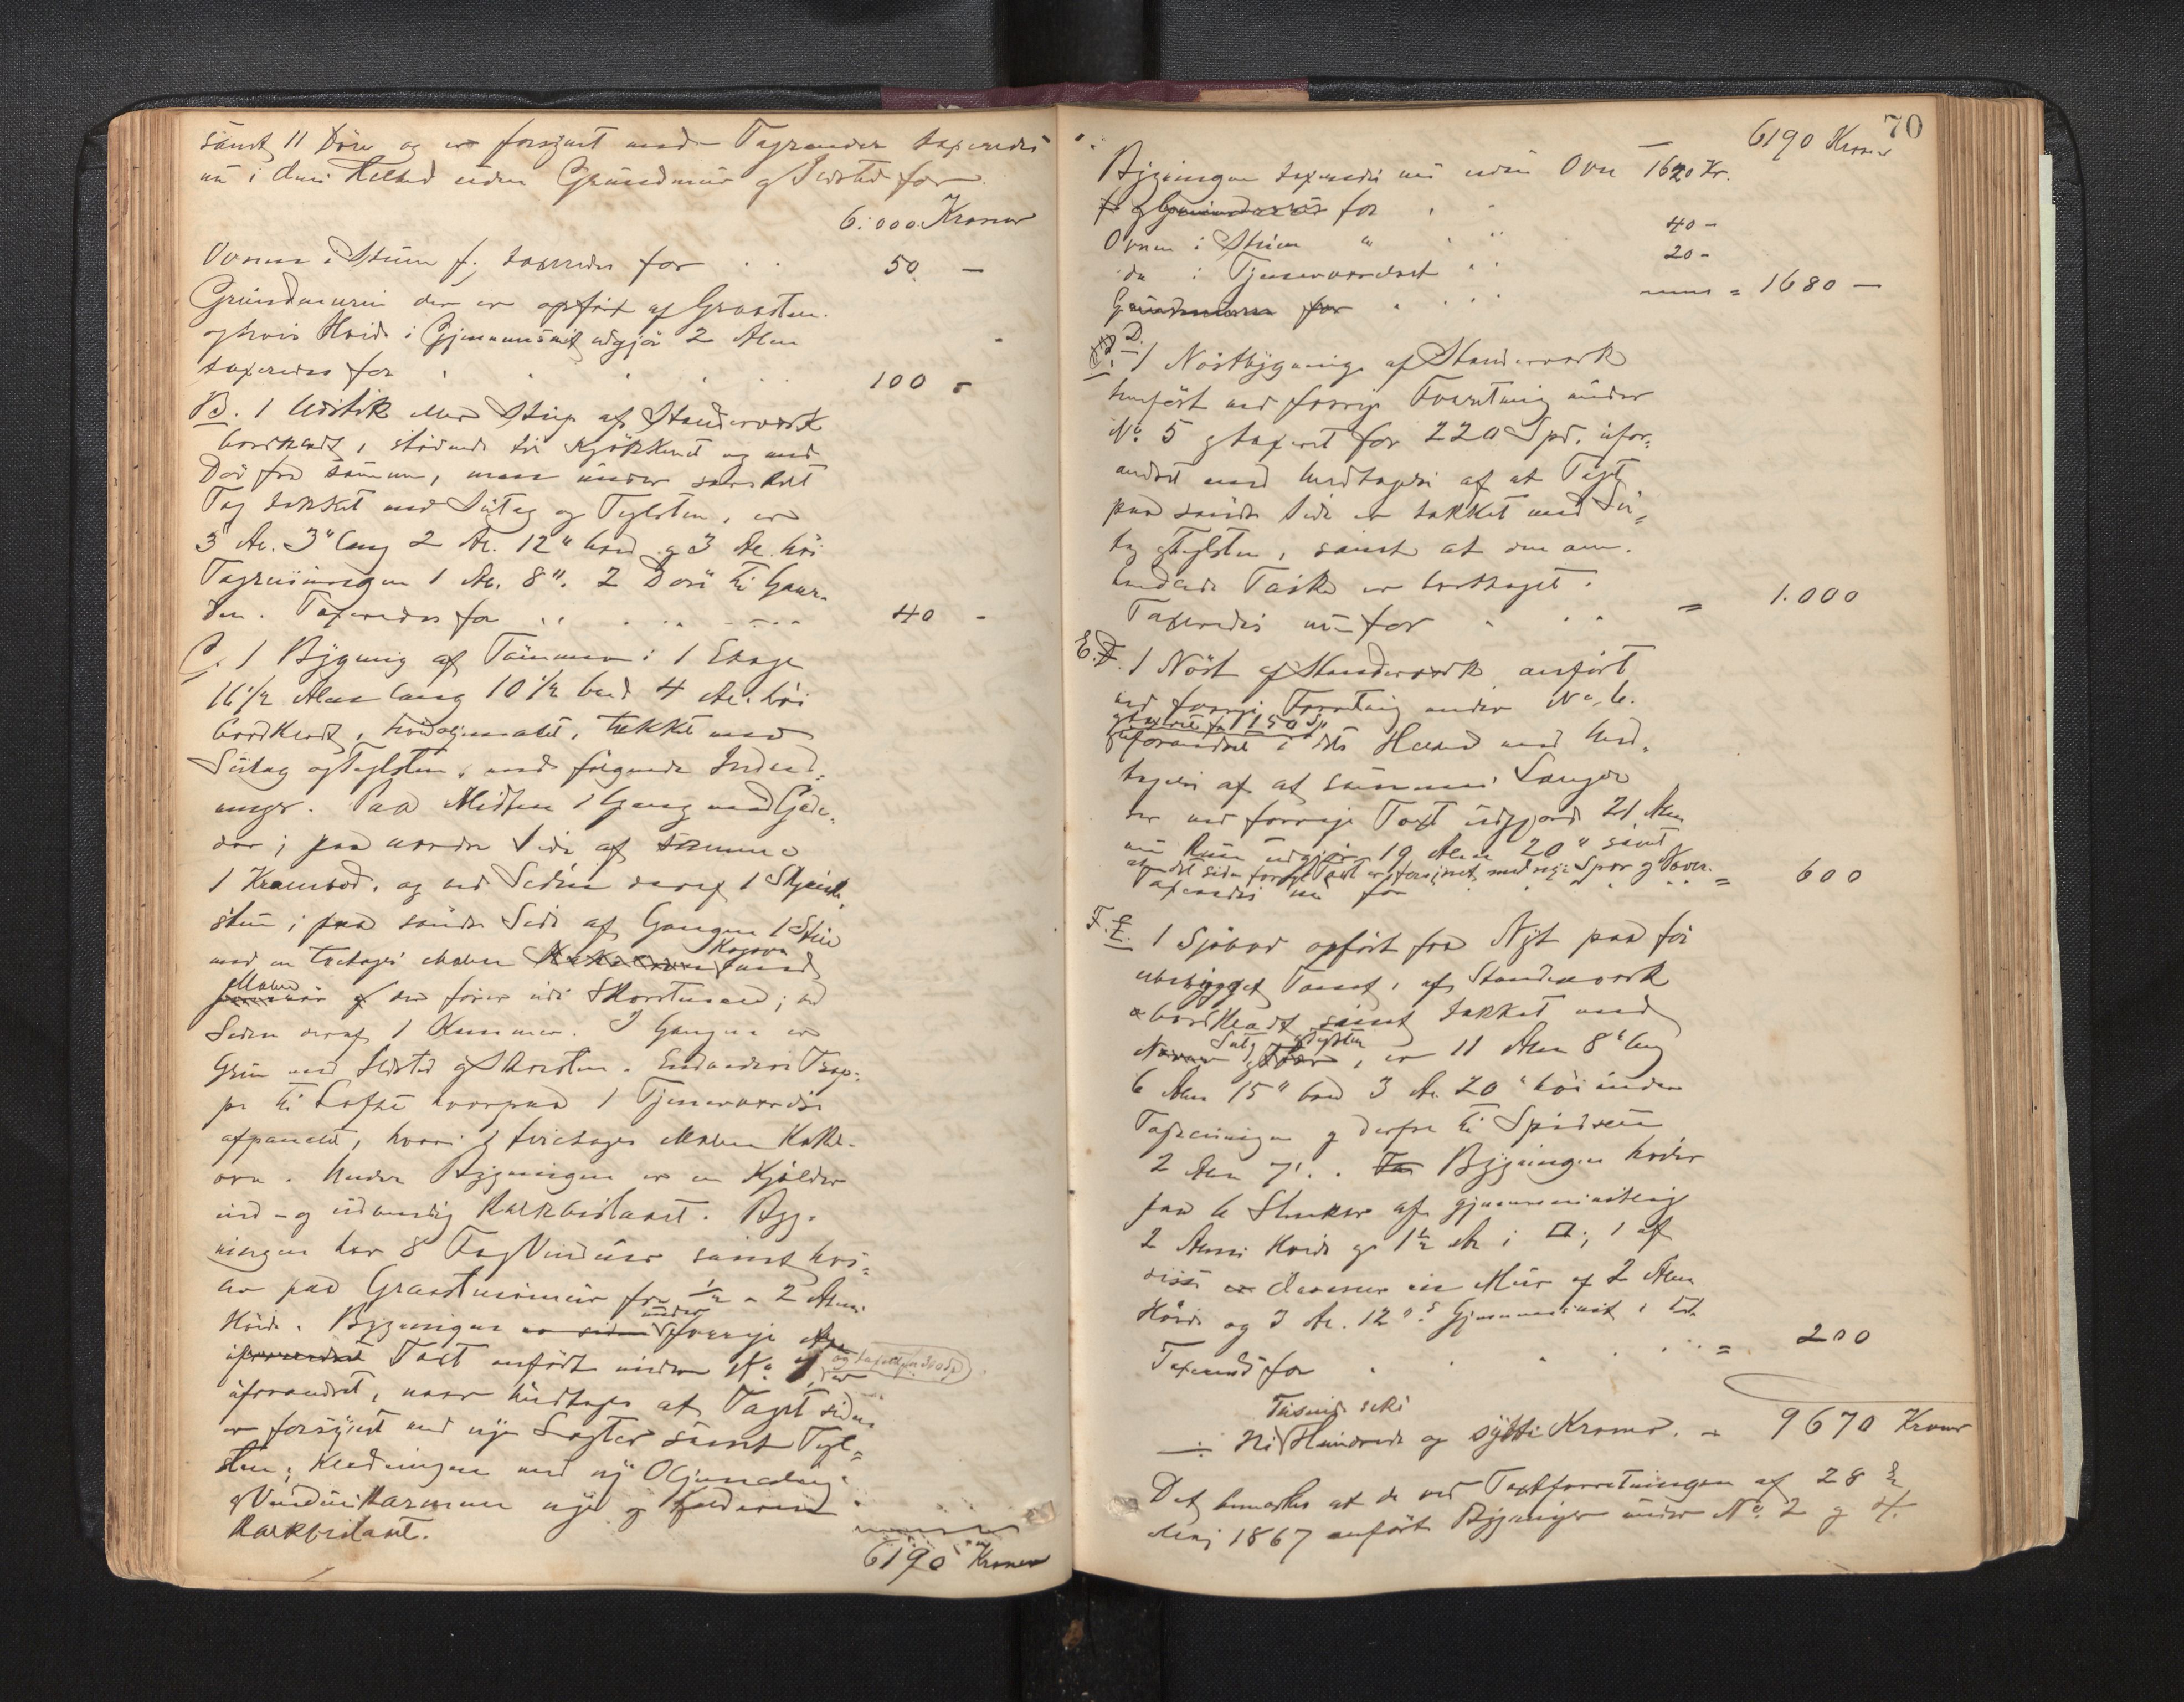 samt 11 Döre og er forsynet med Tagrender taxeredes
nu i dens Helhed uden Grundmur og Ildsted for
6.000 Kroner
Ovnen i Stuen f. taxeredes for 50 —
Grundmuren der er opført af Graasten
og hvis Høide i Gjennemsnit udgjør 2 Alen
taxeredes for 100 -
B. 1 Udstik eller Skup af Stenderværk
bordklædt, stødende til Kjøkkenet og med
Dør fra samme, men under særskilt
Tag tækket med Sutag og Teglsten, er
3 Al. 3" lang 2 Al. 12" bred og 3 Al. høi
Tagreisningen 1 Al. 8". 2 Döre til Gaar-
den. Taxeredes for 40 -
C. 1 Bygning af Tømmer i 1 Etage
16 1/2 Alen lang 10 1/2 bred 4 Al. høi
bordklædt, hvidoljemalet, tækket med
Sutag og Teglsten, med følgende Indred-
ninger. Paa Midten 1 Gang med Gade-
dør; paa nordre Side af samme
1 Krambod, og ved Siden deraf 1 Skjænke-
stue; paa søndre Side af Gangen 1 Stue
med en toetages Kogeovn med
der fører ud i Skorstenen; ved
Siden deraf 1 Kammer. I Gangen er
Grue med Ildsted og Skorsten. Endvidere Trap-
pe til Loftet hvorpaa 1 Tjenerværelse
afpanelet, hvori 1 toetages Kakkel-
ovn. Under Bygningen er en Kjælder
ind- og udvendig kalkbeslaaet. Byg-
ningen har 8 Fag Vinduer samt hvi-
ler paa Graastensmur fra 1/2 a 2 Alens
Høide. Bygningen er siden under forrige
uforandret Taxt anført under No 4, er
uforandret, naar undtages at Taget siden
er forsynet med nye Lægter samt Tegl-
sten; Klædningen med ny Oljemaling
og Vindueskarmene nye og Kjælderen
kalkbeslaaet.
6190 Kroner
70
6190 Kroner
Bygningen taxeredes nu uden Ovn 1620 Kr.
og Grundmur for
Ovnen i Stuen " 40 -
do i Tjenerværelset " 20 -
Grundmuren for = 1680 —
D. 1 Nøstbygning af Stenderværk
anført ved forrige Forretning under
No 5 og taxeret for 220 Spd. ufor-
andret med Undtagelse af at Taget
paa søndre Side er tækket med Su-
tag og Teglsten, samt at den om-
handlede er borttaget.
Taxeredes nu for = 1.000
E. 1 Nøst af Stenderværk anført
ved forrige Forretning under No 6.
og taxeret for 150 Sp
uforandret i dets Helhed med Und-
tagelse af at sammes Længde
der ved forrige Taxt udgjorde 21 Alen
nu kun udgjør 19 Alen 20" samt
at det siden forrige Taxt er forsynet med nye Spær og Næver.
Taxeredes nu for = 600
F. E. 1 Sjøbod opført fra Nyt paa før
ubebygget Tomt, af Stenderværk
bordklædt samt tækket med
Sutag og Teglsten, er 11 Alen 8" lang
6 Alen 15" bred 3 Al. 20" høi under
Tagreisningen og derfra til Spidsen
2 Alen 7". Bygningen hviler
paa 6 Stenkar af gjennemsnitlig
2 Alens Høide og 1 1/2 Al i □; 1 af
disse er desuden en Mur af 2 Alens
Høide og 3 Al. 12" Gjennemsnit,
Taxeredes for = 200
Tusind sex
÷ Ni Hundrede og sytti Kroner. = 9670 Kroner
Det bemærkes at de ved Taxtforretningen af 28de
Maj 1867 anførte Bygninger under No 2 og